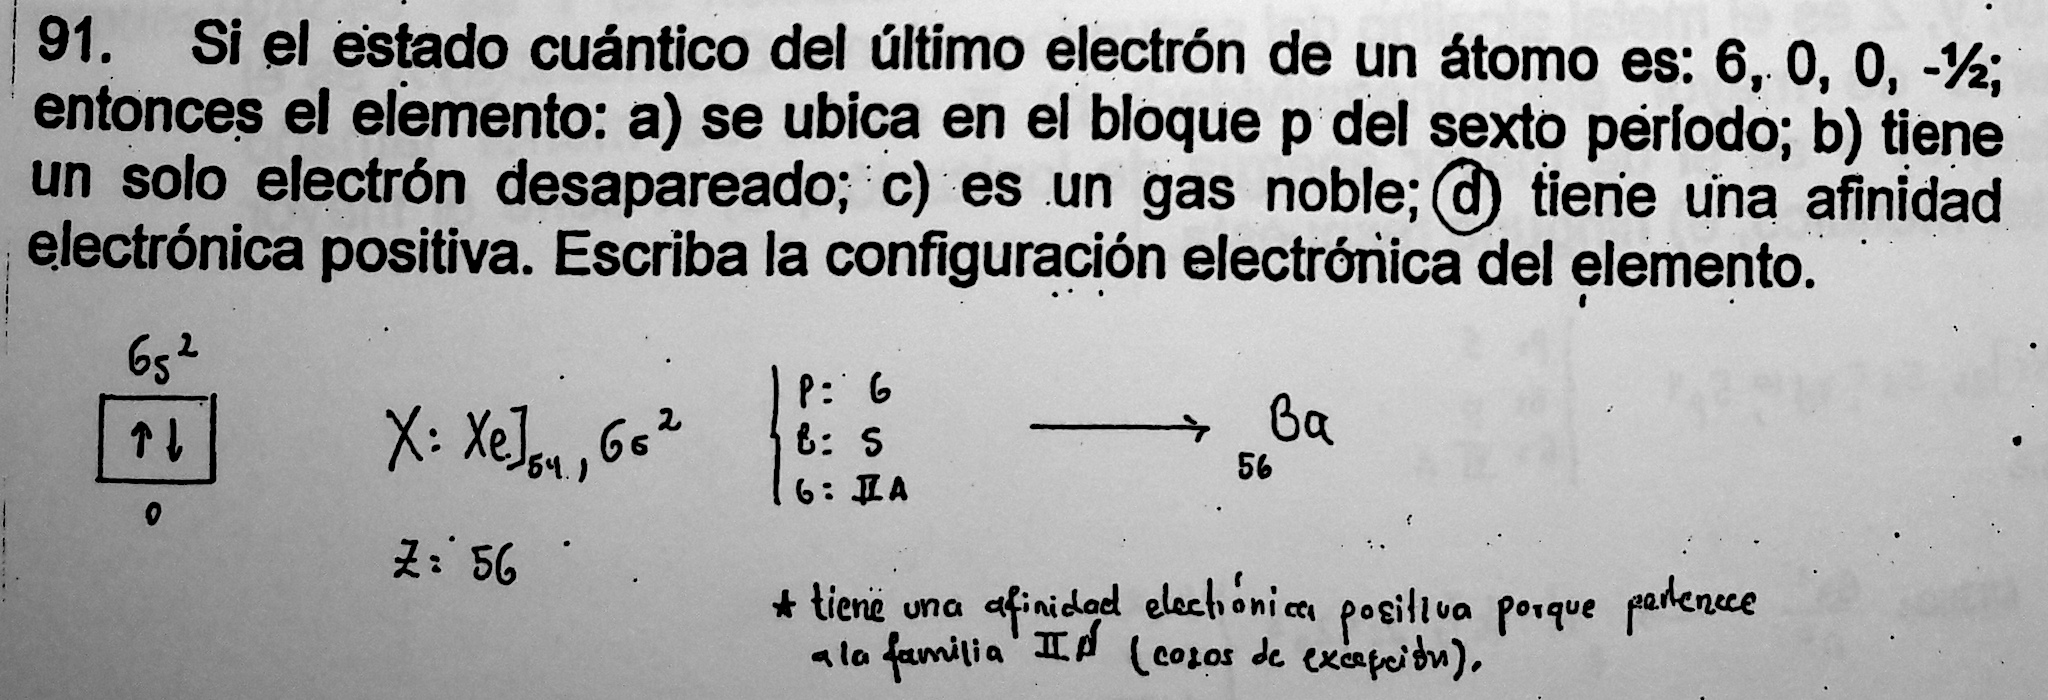 91. Si el estado cuántico del último electrón de un átomo es: 6, 0, 0, -½;
entonces el elemento: a) se ubica en el bloque p del sexto período; b) tiene
un solo electrón desapareado; c) es un gas noble; d) tiene una afinidad
electrónica positiva. Escriba la configuración electrónica del elemento.
6s²
↑↓
0
X: Xe]₅₄, 6s²
Z: 56
P: 6
B: S
G: IIA
→ ₅₆Ba
* tiene una afinidad electrónica positiva porque pertenece
a la familia IIA (casos de excepción).